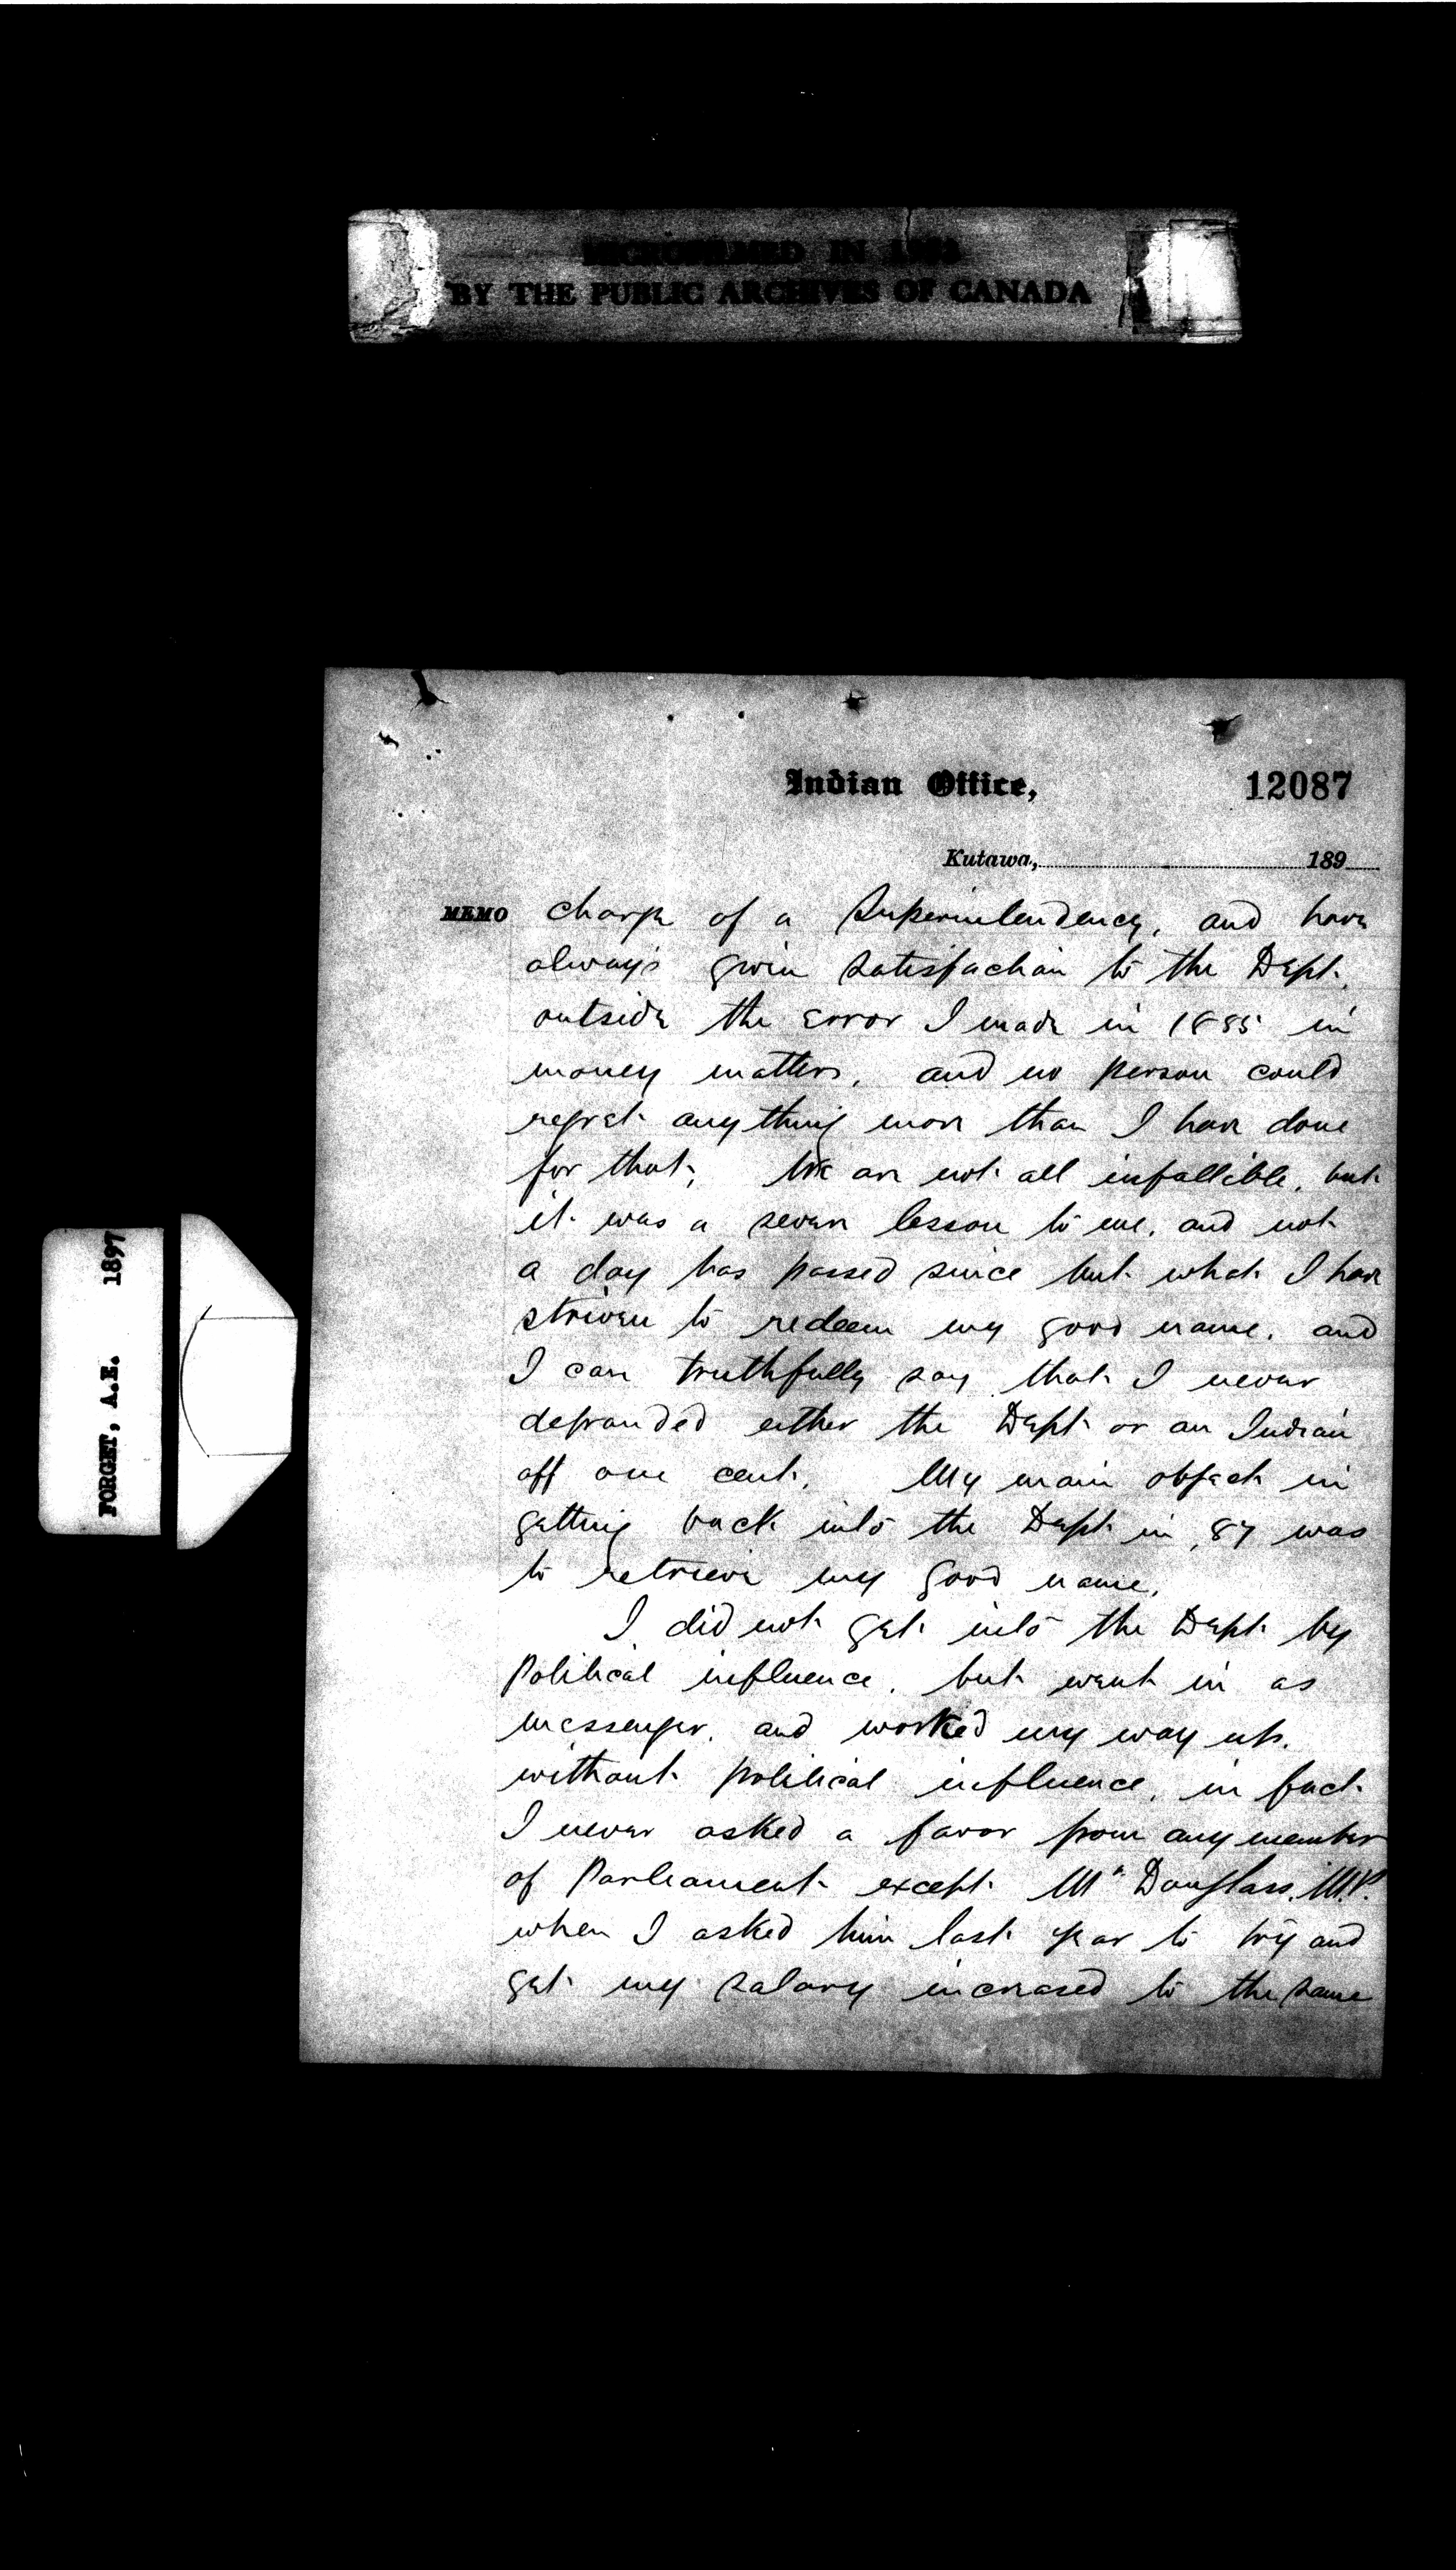 MICROFILMED IN
BY THE PUBLIC ARCHIVES OF CANADA
Indian Office,
12087
Kutawa, 189
MEMO
charge of a Superintendency, and have
always given satisfaction to the Dept.
outside the error I made in 1885 in
money matters, and no person could
regret anything more than I have done
for that, We are not all infallible, but
it was a severe lesson to me, and not
a day has passed since but what I have
striven to redeem my good name, and
I can truthfully say that I never
defrauded either the Dept or an Indian
off one cent. My main object in
getting back into the Dept in ,87 was
to retrieve my good name.
I did not get into the Dept by
Political influence, but went in as
messenger, and worked my way up,
without political influence, in fact
I never asked a favor from any member
of Parliament except Mr Douglass, M.P.
when I asked him last year to try and
get my salary increased to the same
FORGET, A.E. 1897